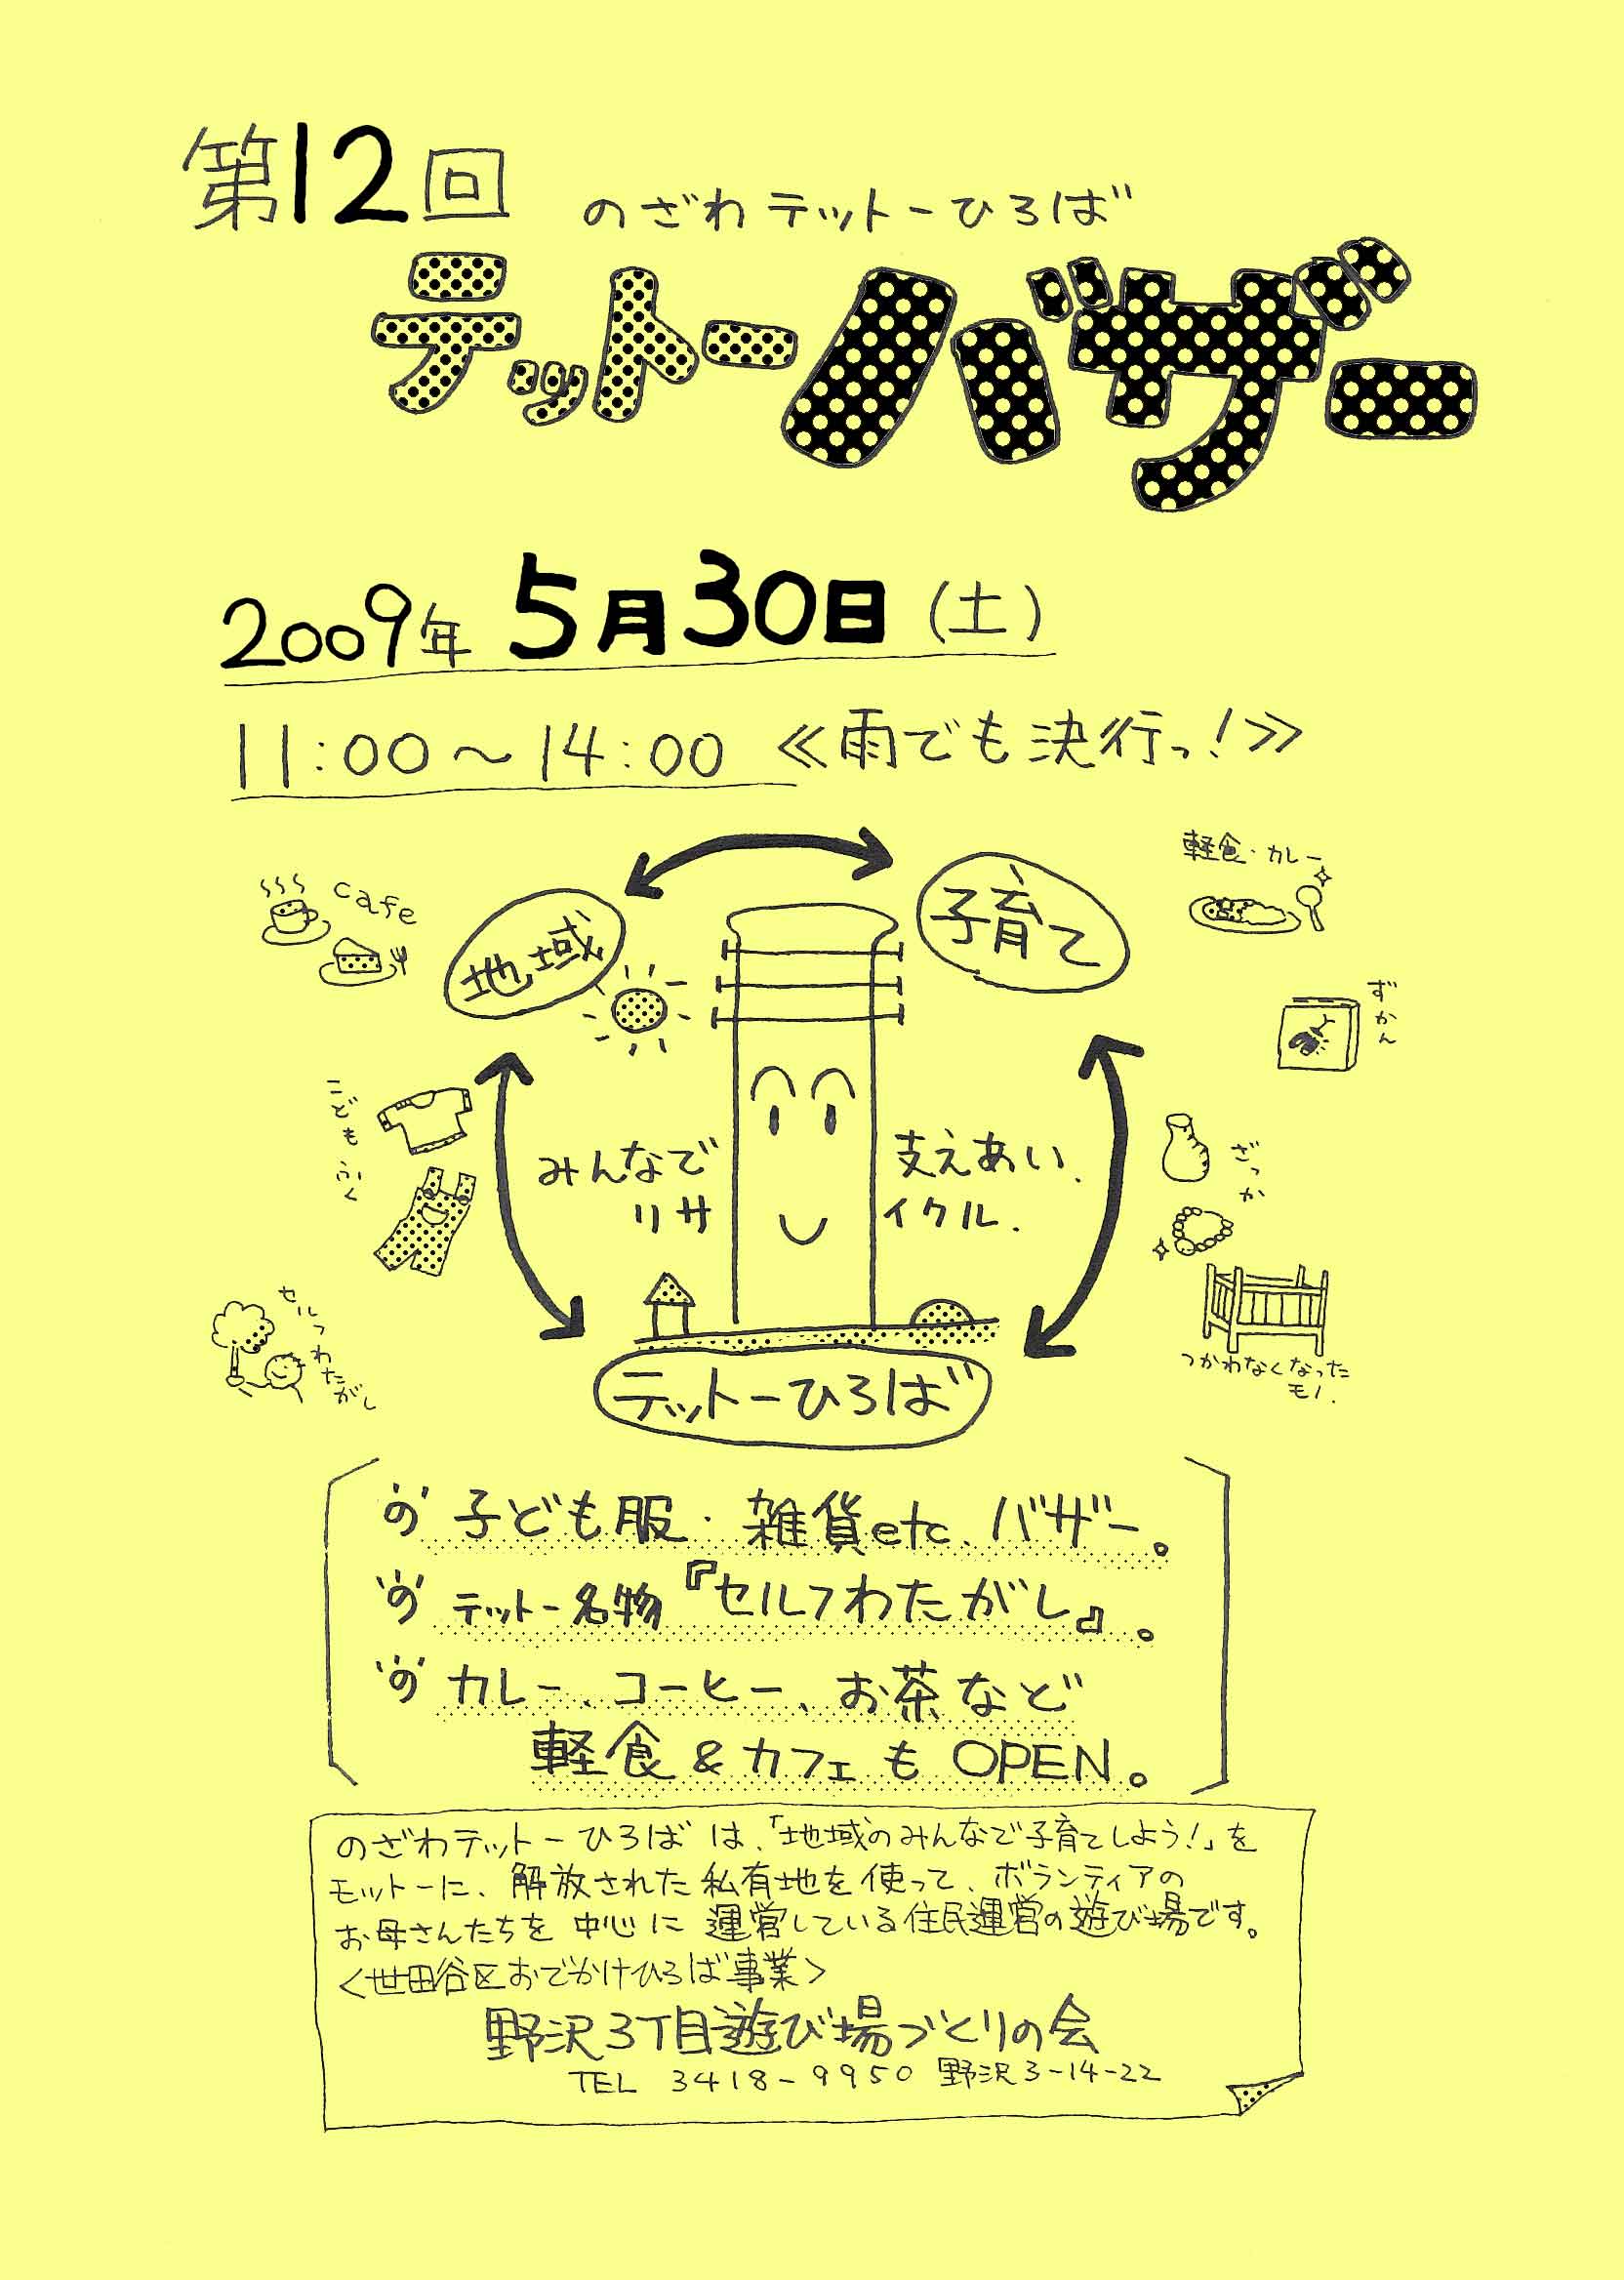 第12回 のざわテットーひろば
テットーバザー
2009年 5月30日(土)
11:00〜14:00 ≪雨でも決行っ!≫
cafe
地域
子育て
軽食・カレー
ずかん
こどもふく
みんなで 支えあい、
リサ イクル.
ざっか
セルフわたがし
つかわなくなった
モノ.
テットーひろば
の 子ども服・雑貨etc、バザー。
の テットー名物『セルフわたがし』。
の カレー、コーヒー、お茶など
軽食&カフェもOPEN。
のざわテットーひろばは、「地域のみんなで子育てしよう!」を
モットーに、解放された私有地を使って、ボランティアの
お母さんたちを中心に運営している住民運営の遊び場です。
<世田谷区おでかけひろば事業>
野沢3丁目遊び場づくりの会
TEL 3418-9950 野沢3-14-22